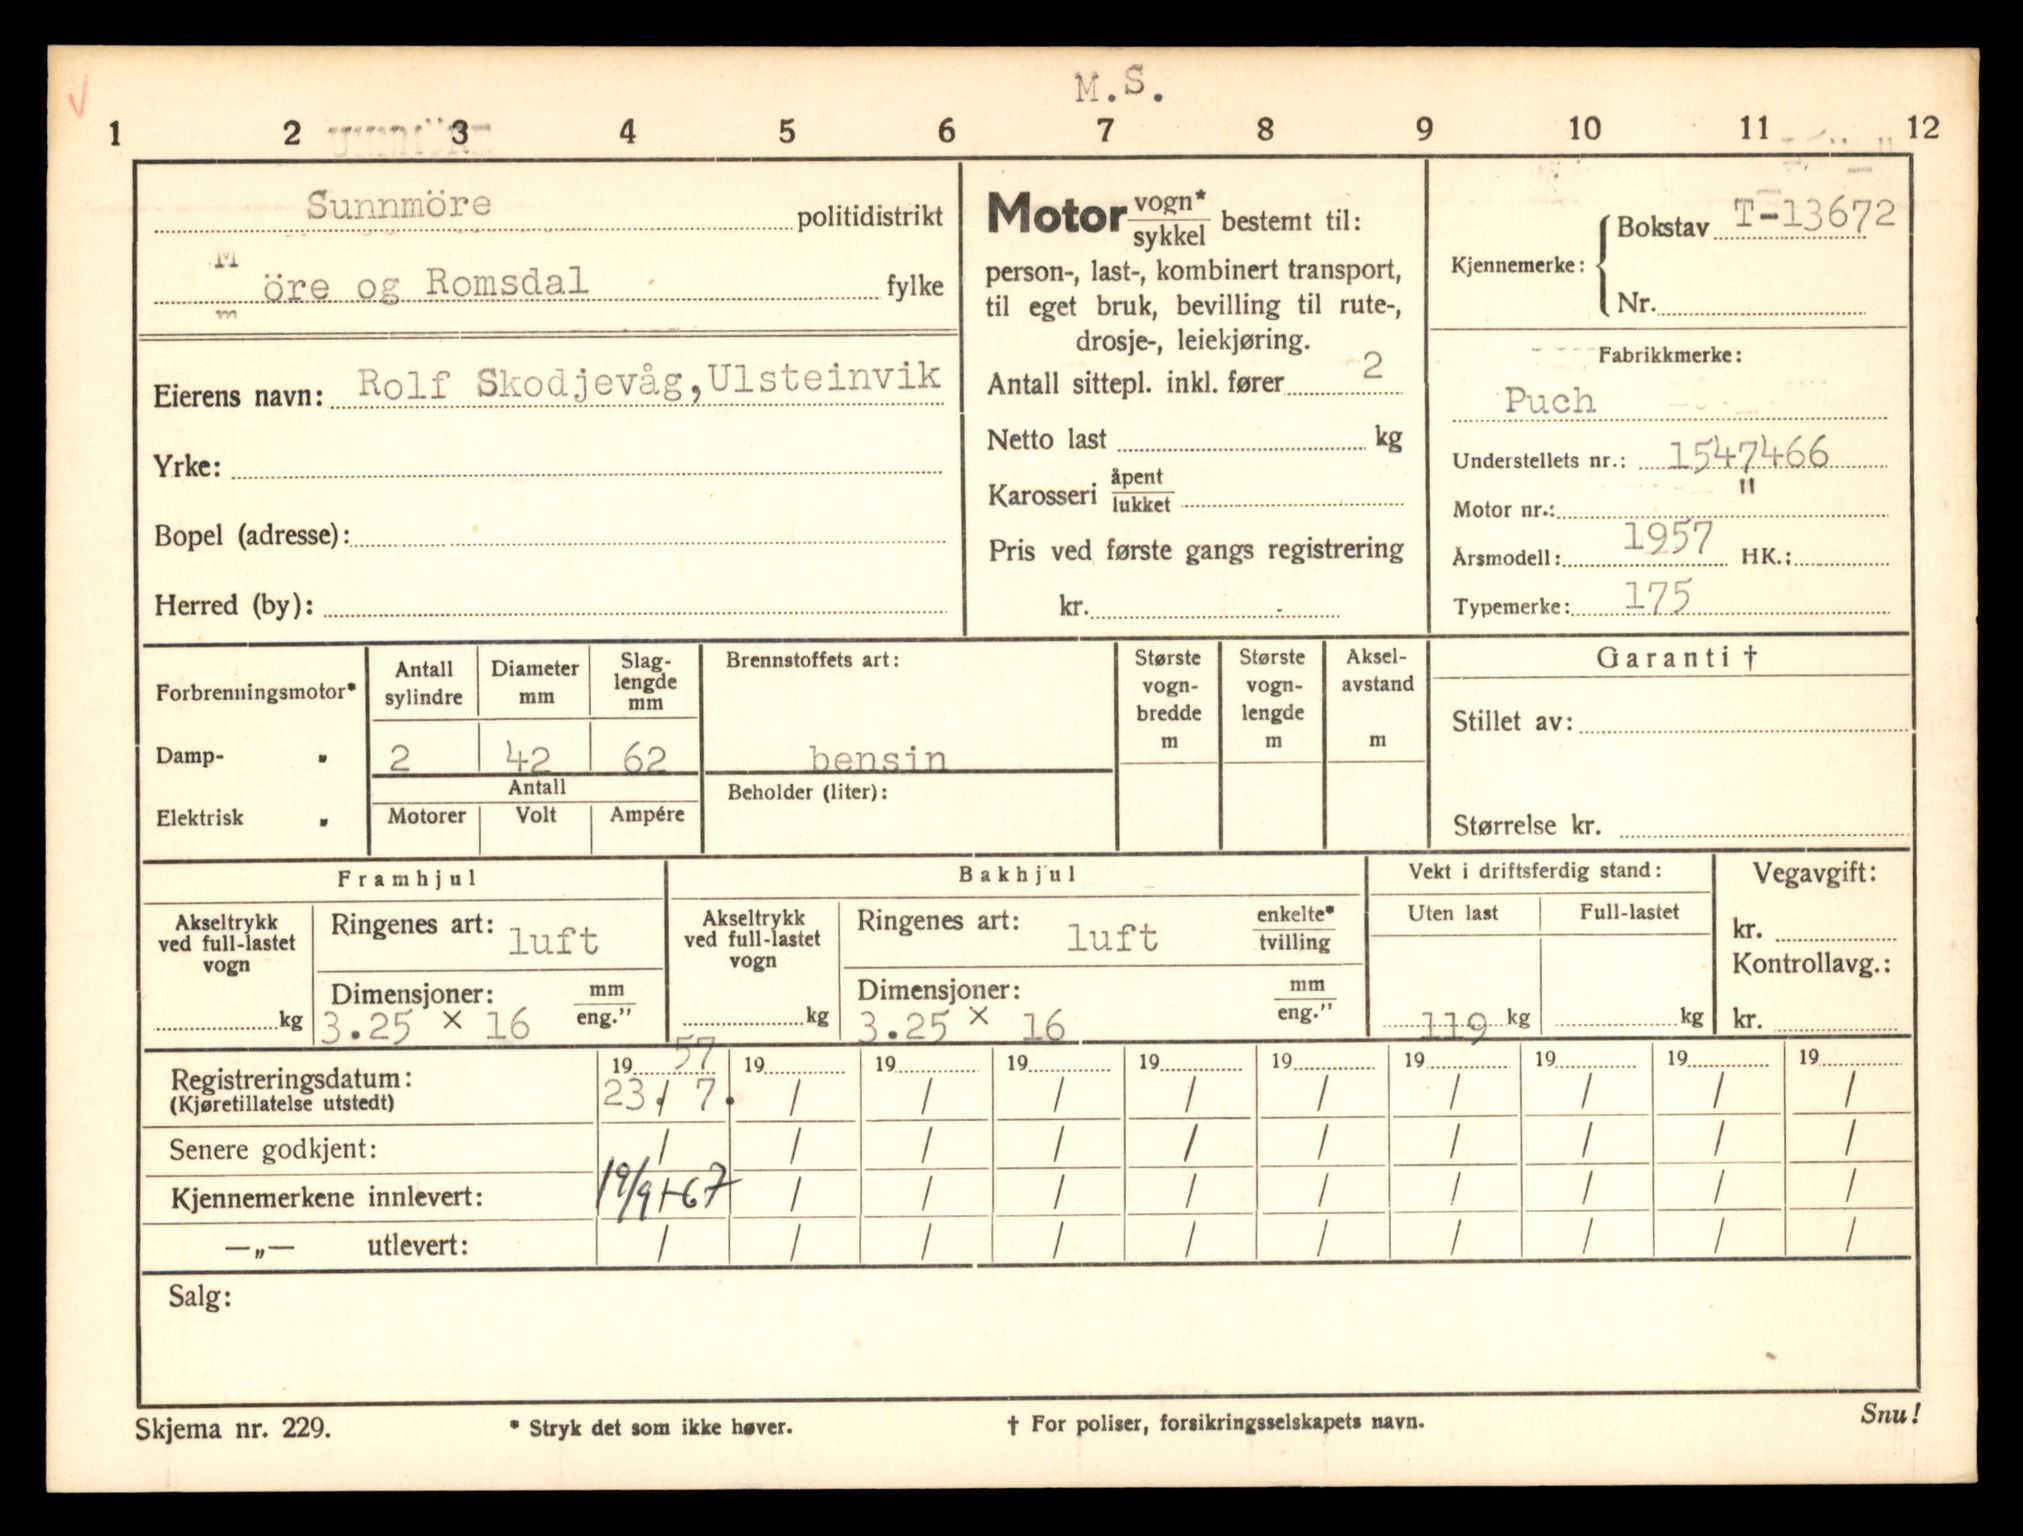 M.S.
1 2 3 4 5 6 7 8 9 10 11 12
Sunnmöre politidistrikt
Möre og Romsdal fylke
Eierens navn: Rolf Skodjevåg, Ulsteinvik
Yrke:
Bopel (adresse):
Herred (by):
Motor vogn* / sykkel bestemt til:
person-, last-, kombinert transport,
til eget bruk, bevilling til rute-,
drosje-, leiekjøring.
Antall sittepl. inkl. fører 2
Netto last kg
Karosseri åpent / lukket
Pris ved første gangs registrering
kr.
Kjennemerke: Bokstav T-13672
Nr.
Fabrikkmerke:
Puch
Understellets nr.: 1547466
Motor nr.: "
Årsmodell: 1957 HK.:
Typemerke: 175
Forbrenningsmotor*
Damp- „
Elektrisk „
Antall sylindre
Diameter mm
Slag-lengde mm
2 42 62
Antall
Motorer Volt Ampére
Brennstoffets art:
bensin
Beholder (liter):
Største vogn-bredde m
Største vogn-lengde m
Aksel-avstand m
Garanti †
Stillet av:
Størrelse kr.
Framhjul
Akseltrykk ved full-lastet vogn
kg
Ringenes art: luft
Dimensjoner: mm / eng."
3.25 × 16
Bakhjul
Akseltrykk ved full-lastet vogn
kg
Ringenes art: luft enkelte* / tvilling
Dimensjoner: mm / eng."
3.25 × 16
Vekt i driftsferdig stand:
Uten last Full-lastet
119 kg kg
Vegavgift:
kr.
Kontrollavg.:
kr.
19 57 19 19 19 19 19 19 19 19 19
Registreringsdatum: 23./ 7. / / / / / / / / /
(Kjøretillatelse utstedt)
Senere godkjent: / / / / / / / / / /
Kjennemerkene innlevert: 19/9-67 / / / / / / / / /
—„— utlevert: / / / / / / / / / /
Salg:
Skjema nr. 229.
* Stryk det som ikke høver.
† For poliser, forsikringsselskapets navn.
Snu!